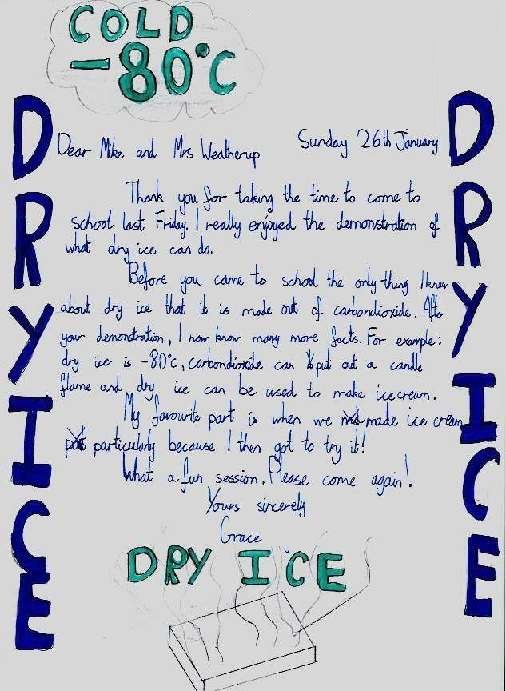 COLD
-80°C
DRY ICE
DRY ICE
Dear Mike and Mrs Weatherup
Sunday 26th January
Thank you for taking the time to come to
school last Friday. I really enjoyed the demonstration of
what dry ice can do.
Before you came to school the only thing I knew
about dry ice that it is made out of carbondioxide. After
your demonstration, I now know many more facts. For example:
dry ice is -80°C, carbondioxide can put out a candle
flame and dry ice can be used to make icecream.
My favourite part is when we made ice cream
particularly because I then got to try it!
What a fun session. Please come again!
Yours sincerely
Grace
DRY ICE